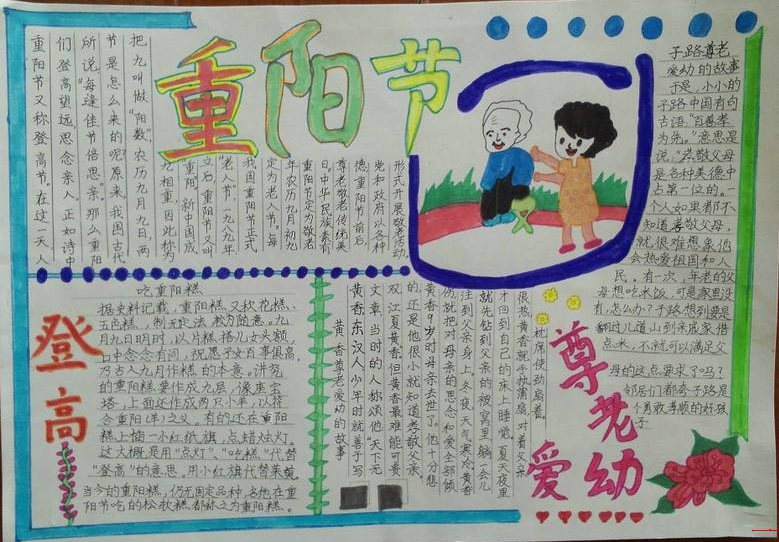 重阳节
重阳节又称登高节。在这一天人
们登高望远,思念亲人。正如诗中
所说:"每逢佳节倍思亲"那么重阳
节是怎么来的呢?原来,我国古代
把九叫做"阳数",农历九月九日,两
九相重,因此称为
"重阳"新中国成
立后,重阳节又叫
"老人节"。一九八九年
我国重阳节正式
定为老人节。每
年农历九月初九
重阳节定为敬老
日。中华民族素有
尊老敬老传统美
德重阳节前后
党和政府以各种
形式开展敬老活动
子路尊老
爱幼的故事
于是,小小的
子路中国有句
古语:"百善孝
为先。"意思是
说,孝敬父母
是各种美德中
占第一位的。一
个人如果都不
知道孝敬父母,
就很难想象他
会热爱祖国和人
民。有一次,年老的父
母想吃米饭,可是家里没
有,怎么办?子路想到要是
翻过几道山到亲戚家借
点米,不就可以满足父
母的这点要求了吗?
邻居们都夸子路是
个勇敢孝顺的好孩
子
登高
吃重阳糕
据史料记载,重阳糕又称花糕、
五色糕,制无定法,较为随意。九
月九日明时,以片糕搭儿女头额,
口中念念有词,祝愿子女百事俱高,
乃古人九月作糕的本意。讲究
的重阳糕要作成九层,像座宝
塔,上面还作成两只小羊,以符
合重阳(羊)之义。有的还在重阳
糕上插一小红纸旗,点蜡烛灯。
这大概是用"点灯"、"吃糕"代替
"登高"的意思,用小红旗代替茱萸。
当今的重阳糕,仍无固定品种,各地在重
阳节吃的松软糕都称之为重阳糕。
黄香尊老爱幼的故事
黄香,东汉人,少年时就善于写
文章,当时的人称颂他"天下无
双,江夏黄香"但黄香最难能可贵
的还是他很小就知道孝敬父亲。
黄香9岁时母亲去世了。他十分悲
伤,就把对母亲的思念和爱全部倾
注到父亲身上。冬夜,天气寒冷,黄香
就先钻到父亲的被窝里躺一会儿
才回到自己的床上睡觉。夏天夜里
很热,黄香就手执蒲扇,对着父亲
枕席使劲扇着。
尊老
爱幼